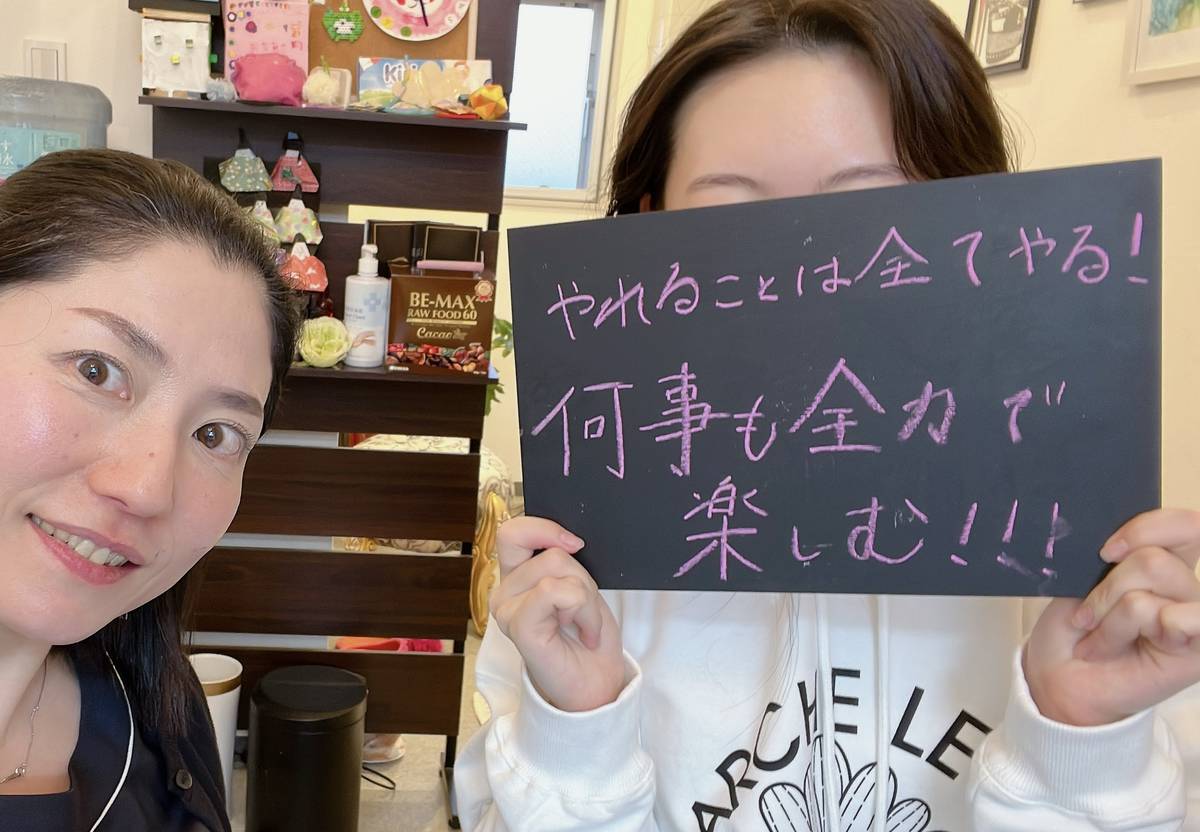 やれることは全てやる!
何事も全力で
楽しむ!!!
BE-MAX
RAW FOOD 60
Cacao
Ki
ARCHE LE